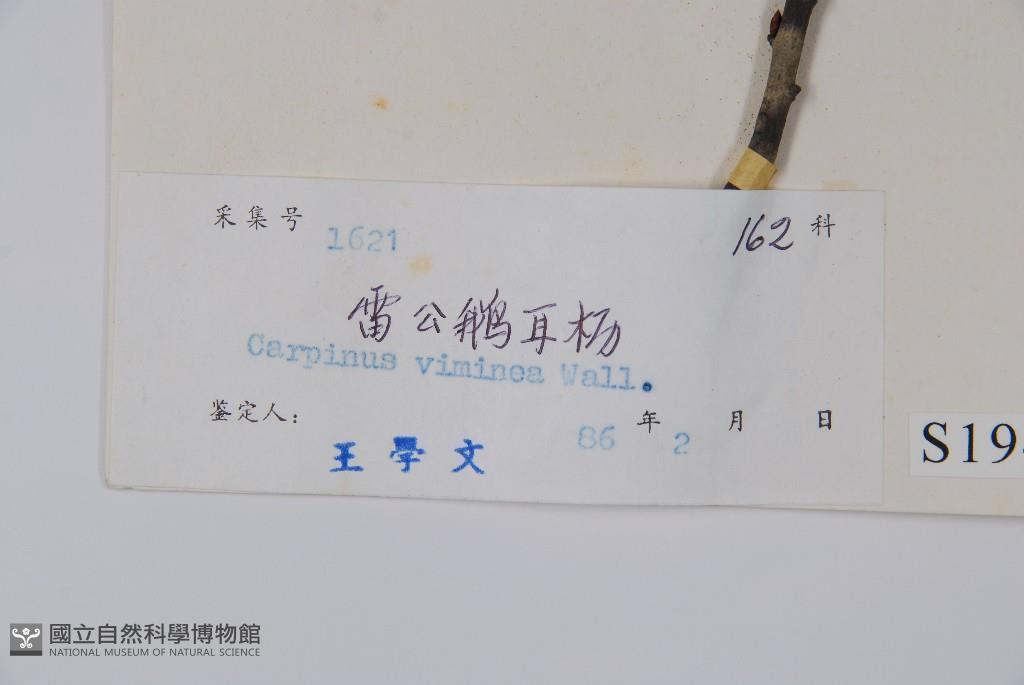 采集号 1621 162 科
雷公鹅耳枥
Carpinus viminea Wall.
鉴定人: 王學文 86 年 2 月 日
S19
國立自然科學博物館
NATIONAL MUSEUM OF NATURAL SCIENCE